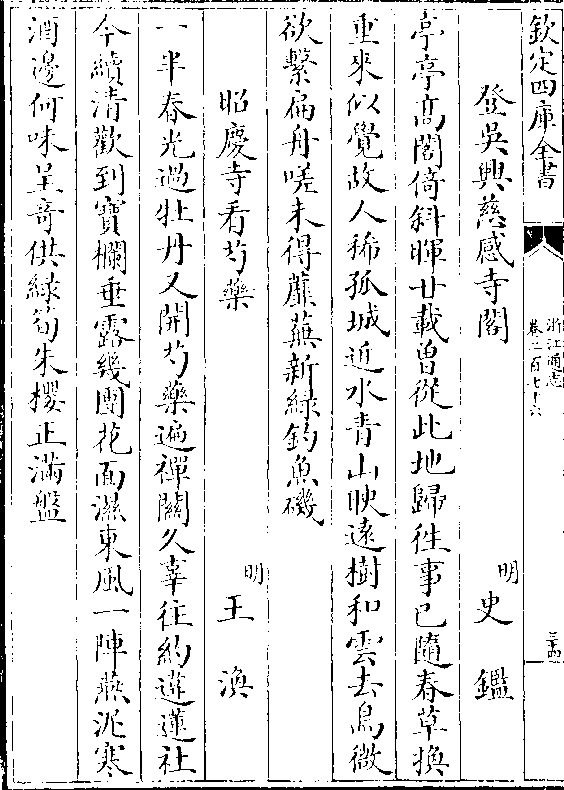 欽定四庫全書
浙江通志
卷二百七十六
三十四
登吳興慈感寺閣
明
史鑑
亭亭髙閣倚斜暉廿載曽從此地歸徃事已隨春草換
重來似覺故人稀孤城近水青山映逺樹和雲去鳥微
欲繫扁舟嗟未得蘼蕪新緑釣魚磯
昭慶寺看芍藥
明
王渙
一半春光過牡丹又開芍藥遍禪關久辜往約違蓮社
今續清歡到寳欄垂露幾團花面濕東風一陣燕泥寒
酒邊何味呈竒供緑筍朱櫻正滿盤